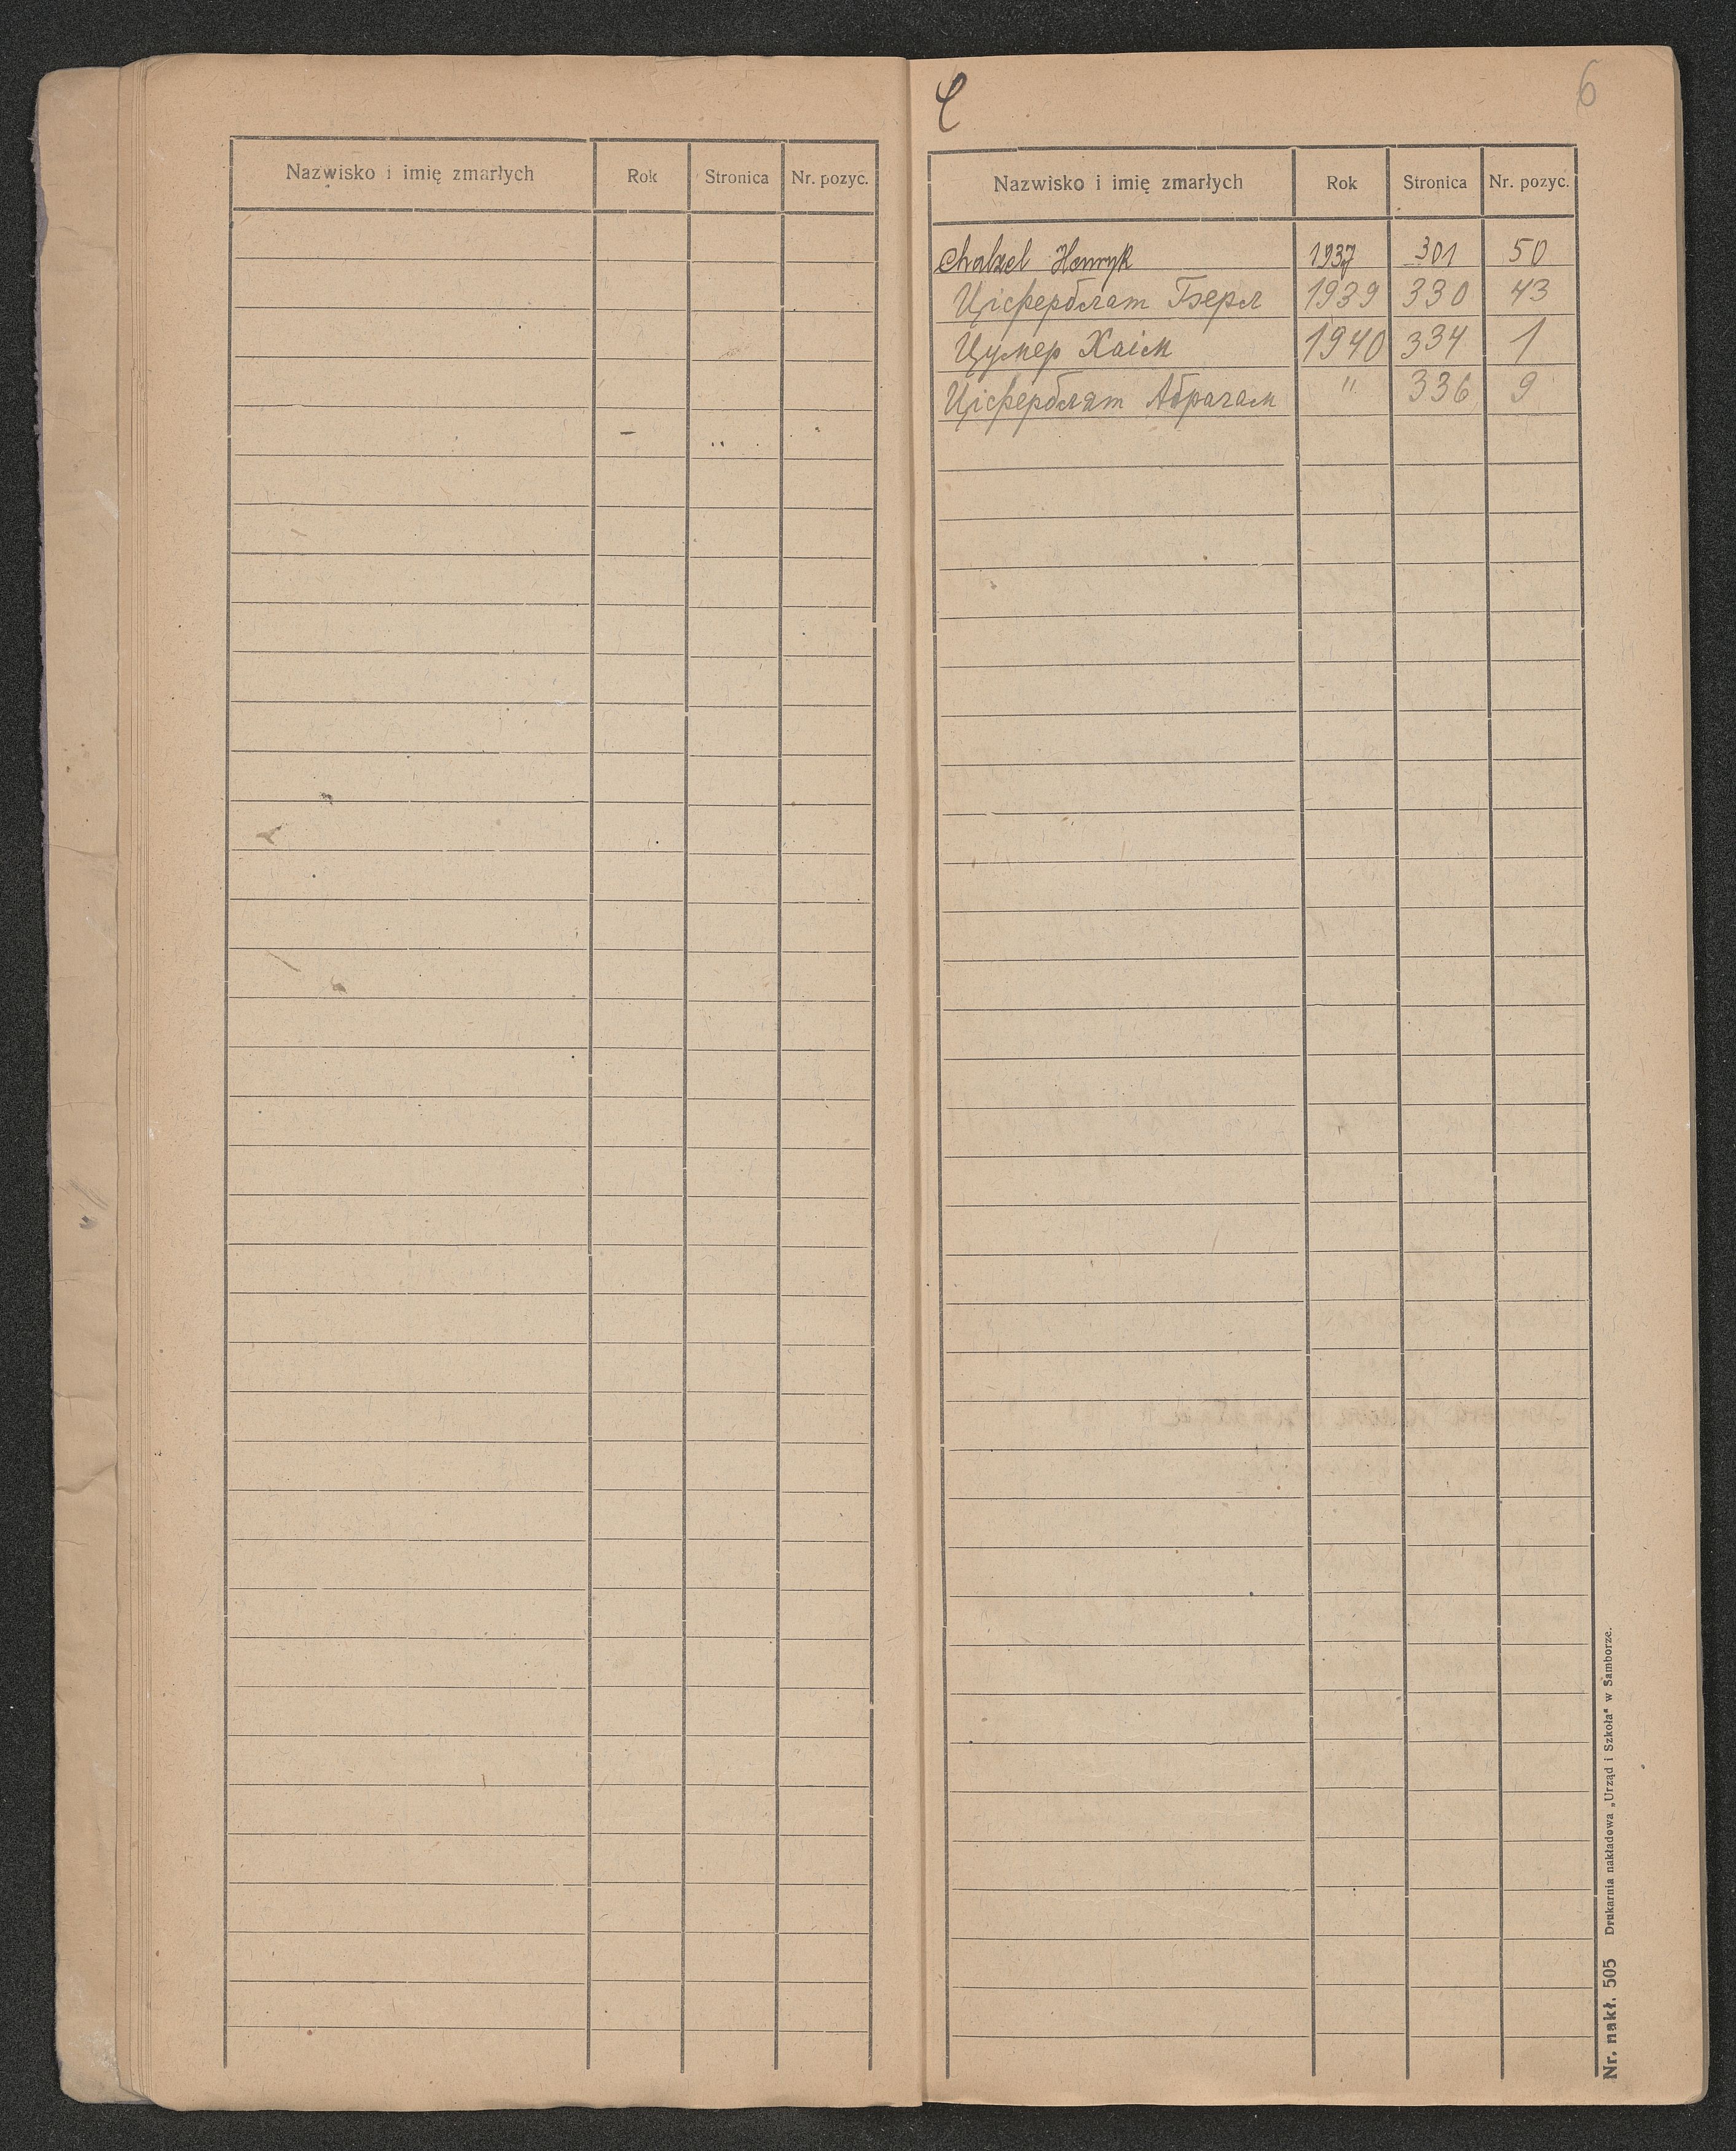 Nazwisko i imię zmarłych Rok Stronica Nr. pozyc.
C 6
Nazwisko i imię zmarłych Rok Stronica Nr. pozyc.
Henryk 1937 301 50
Ціферблат Гзерл 1939 330 43
Цумер Хаім 1940 334 1
Ціферблят Абрагам " 336 9
Nr. nakł. 505 Drukarnia nakładowa „Urząd i Szkoła" w Samborze.